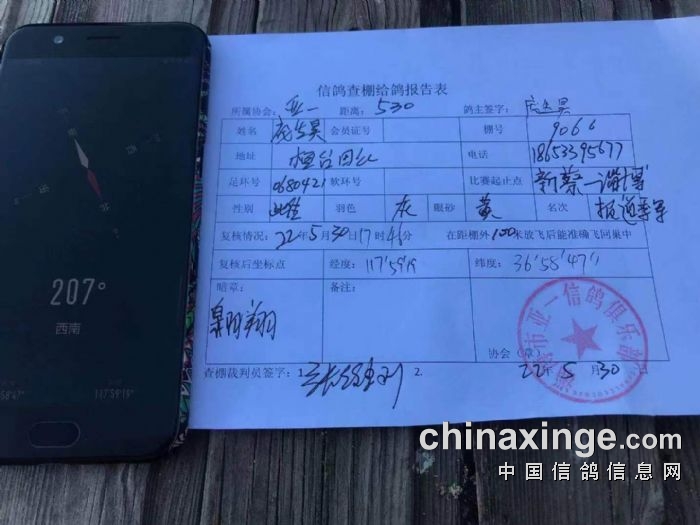 信鸽查棚给鸽报告表
所属协会: 亚一 距离: 530 鸽主签字:
姓名 会员证号 棚号 9066
地址 桓台田红 电话 18653395677
足环号 0680421 软环号 比赛起止点 新蔡—淄博
性别 雌 羽色 灰 眼砂 黄 名次 报道季军
复核情况: 22年5月30日17时46分 在距棚外100米放飞后能准确飞回巢中
复核后坐标点 经度: 117'59'19 纬度: 36'58'47"
暗章: 备注:
翔
协会(章)
22年5月30日
查棚裁判员签字: 1. 2.
207°
西南
58'47" 117°59'19"
淄博市亚一信鸽俱乐部
chinaxinge.com
中国信鸽信息网